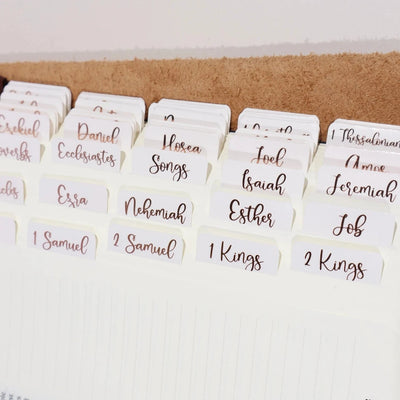 1 Thessalonian
Ezekiel Daniel Hosea Joel Amos
Proverbs Ecclesiastes Songs Isaiah Jeremiah
Ezra Nehemiah Esther Job
1 Samuel 2 Samuel 1 Kings 2 Kings